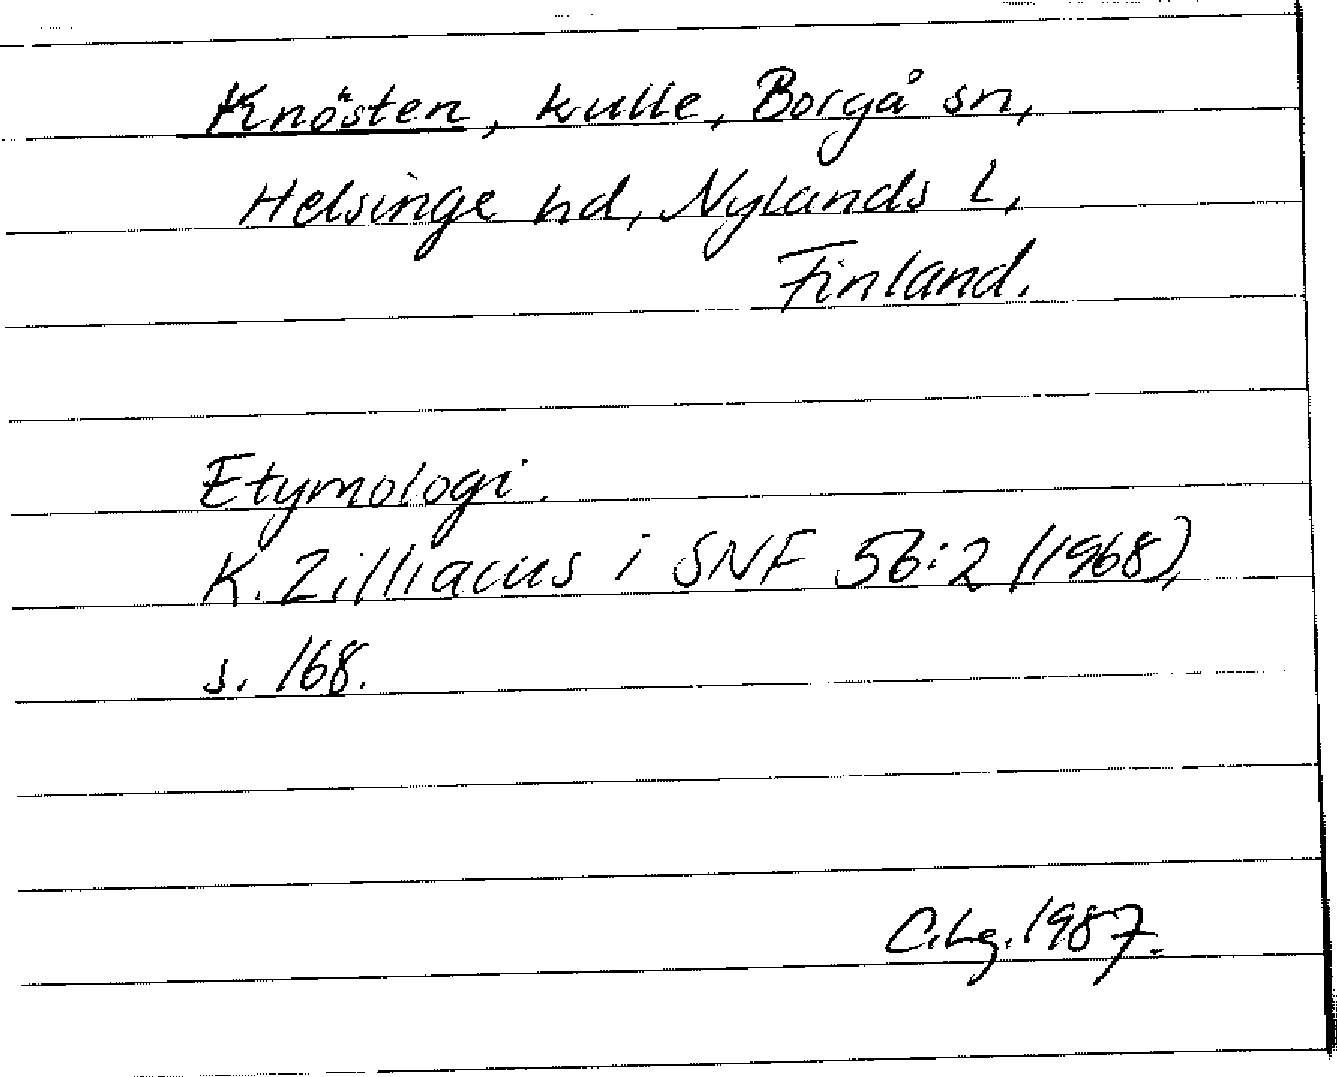 Knösten, kulle, Borgå sn,
Helsinge hd, Nylands L,
Finland.
Etymologi.
K. Zilliacus i SNF 56:2 (1968),
s. 168.
C.Lg. 1987.